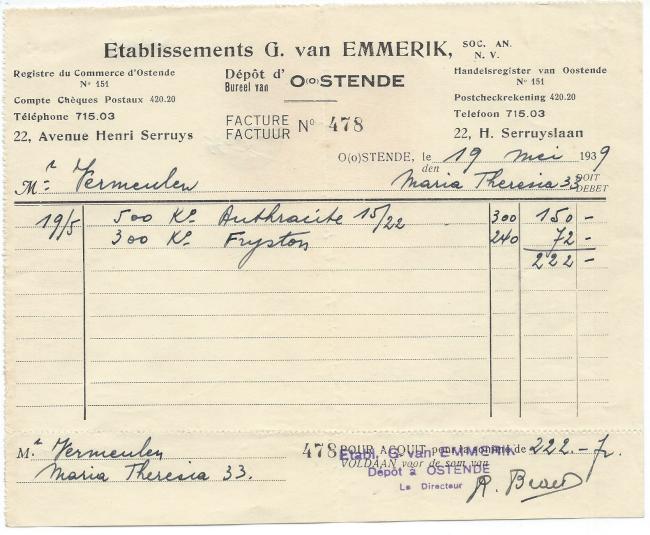 Etablissements G. van EMMERIK, SOC. AN. N. V.
Registre du Commerce d'Ostende
Nº 151
Compte Chèques Postaux 420.20
Téléphone 715.03
22, Avenue Henri Serruys
Dépôt d'
Bureel van
O(O)STENDE
FACTURE
FACTUUR
Nº 478
Handelsregister van Oostende
Nº 151
Postcheckrekening 420.20
Telefoon 715.03
22, H. Serruyslaan
O(O)STENDE, le den 19 mei 1939
Mr Vermeulen Maria Theresia 33 DOIT DEBET
19/5 500 Ko Anthracite 15/22 300 150 -
300 Ko Fryston 240 72 -
222 -
Mr Vermeulen
Maria Theresia 33.
478 POUR ACQUIT pour la somme de 222.- fr.
VOLDAAN voor de som van
Etabl. G. van EMMERIK
Dépôt à OSTENDE
Le Directeur